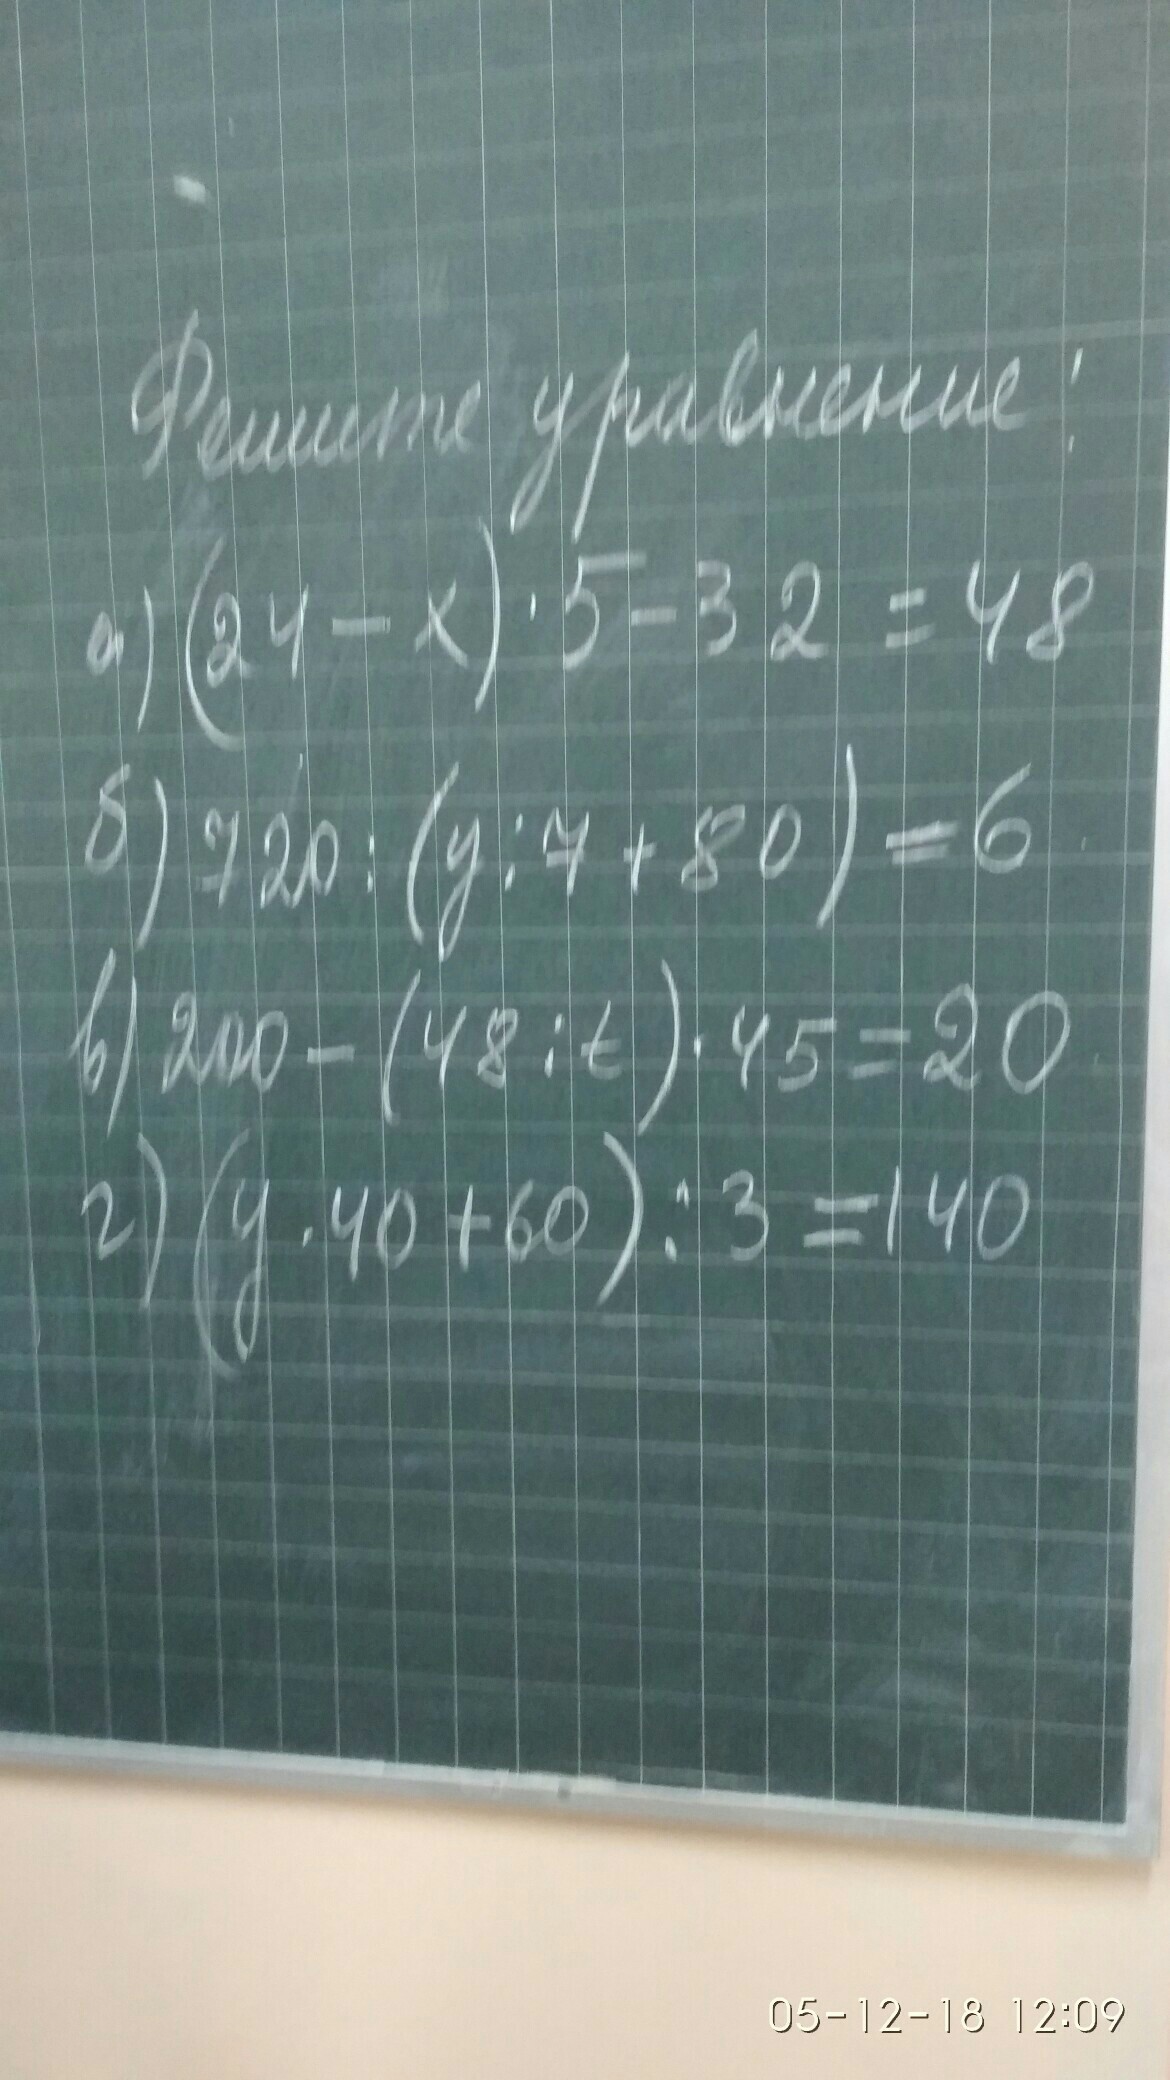 Решите уравнение:
а) (24 - x) · 5 - 32 = 48
б) 720 : (y : 7 + 80) = 6
в) 200 - (48 : t) · 45 = 20
г) (y · 40 + 60) : 3 = 140
05-12-18 12:09